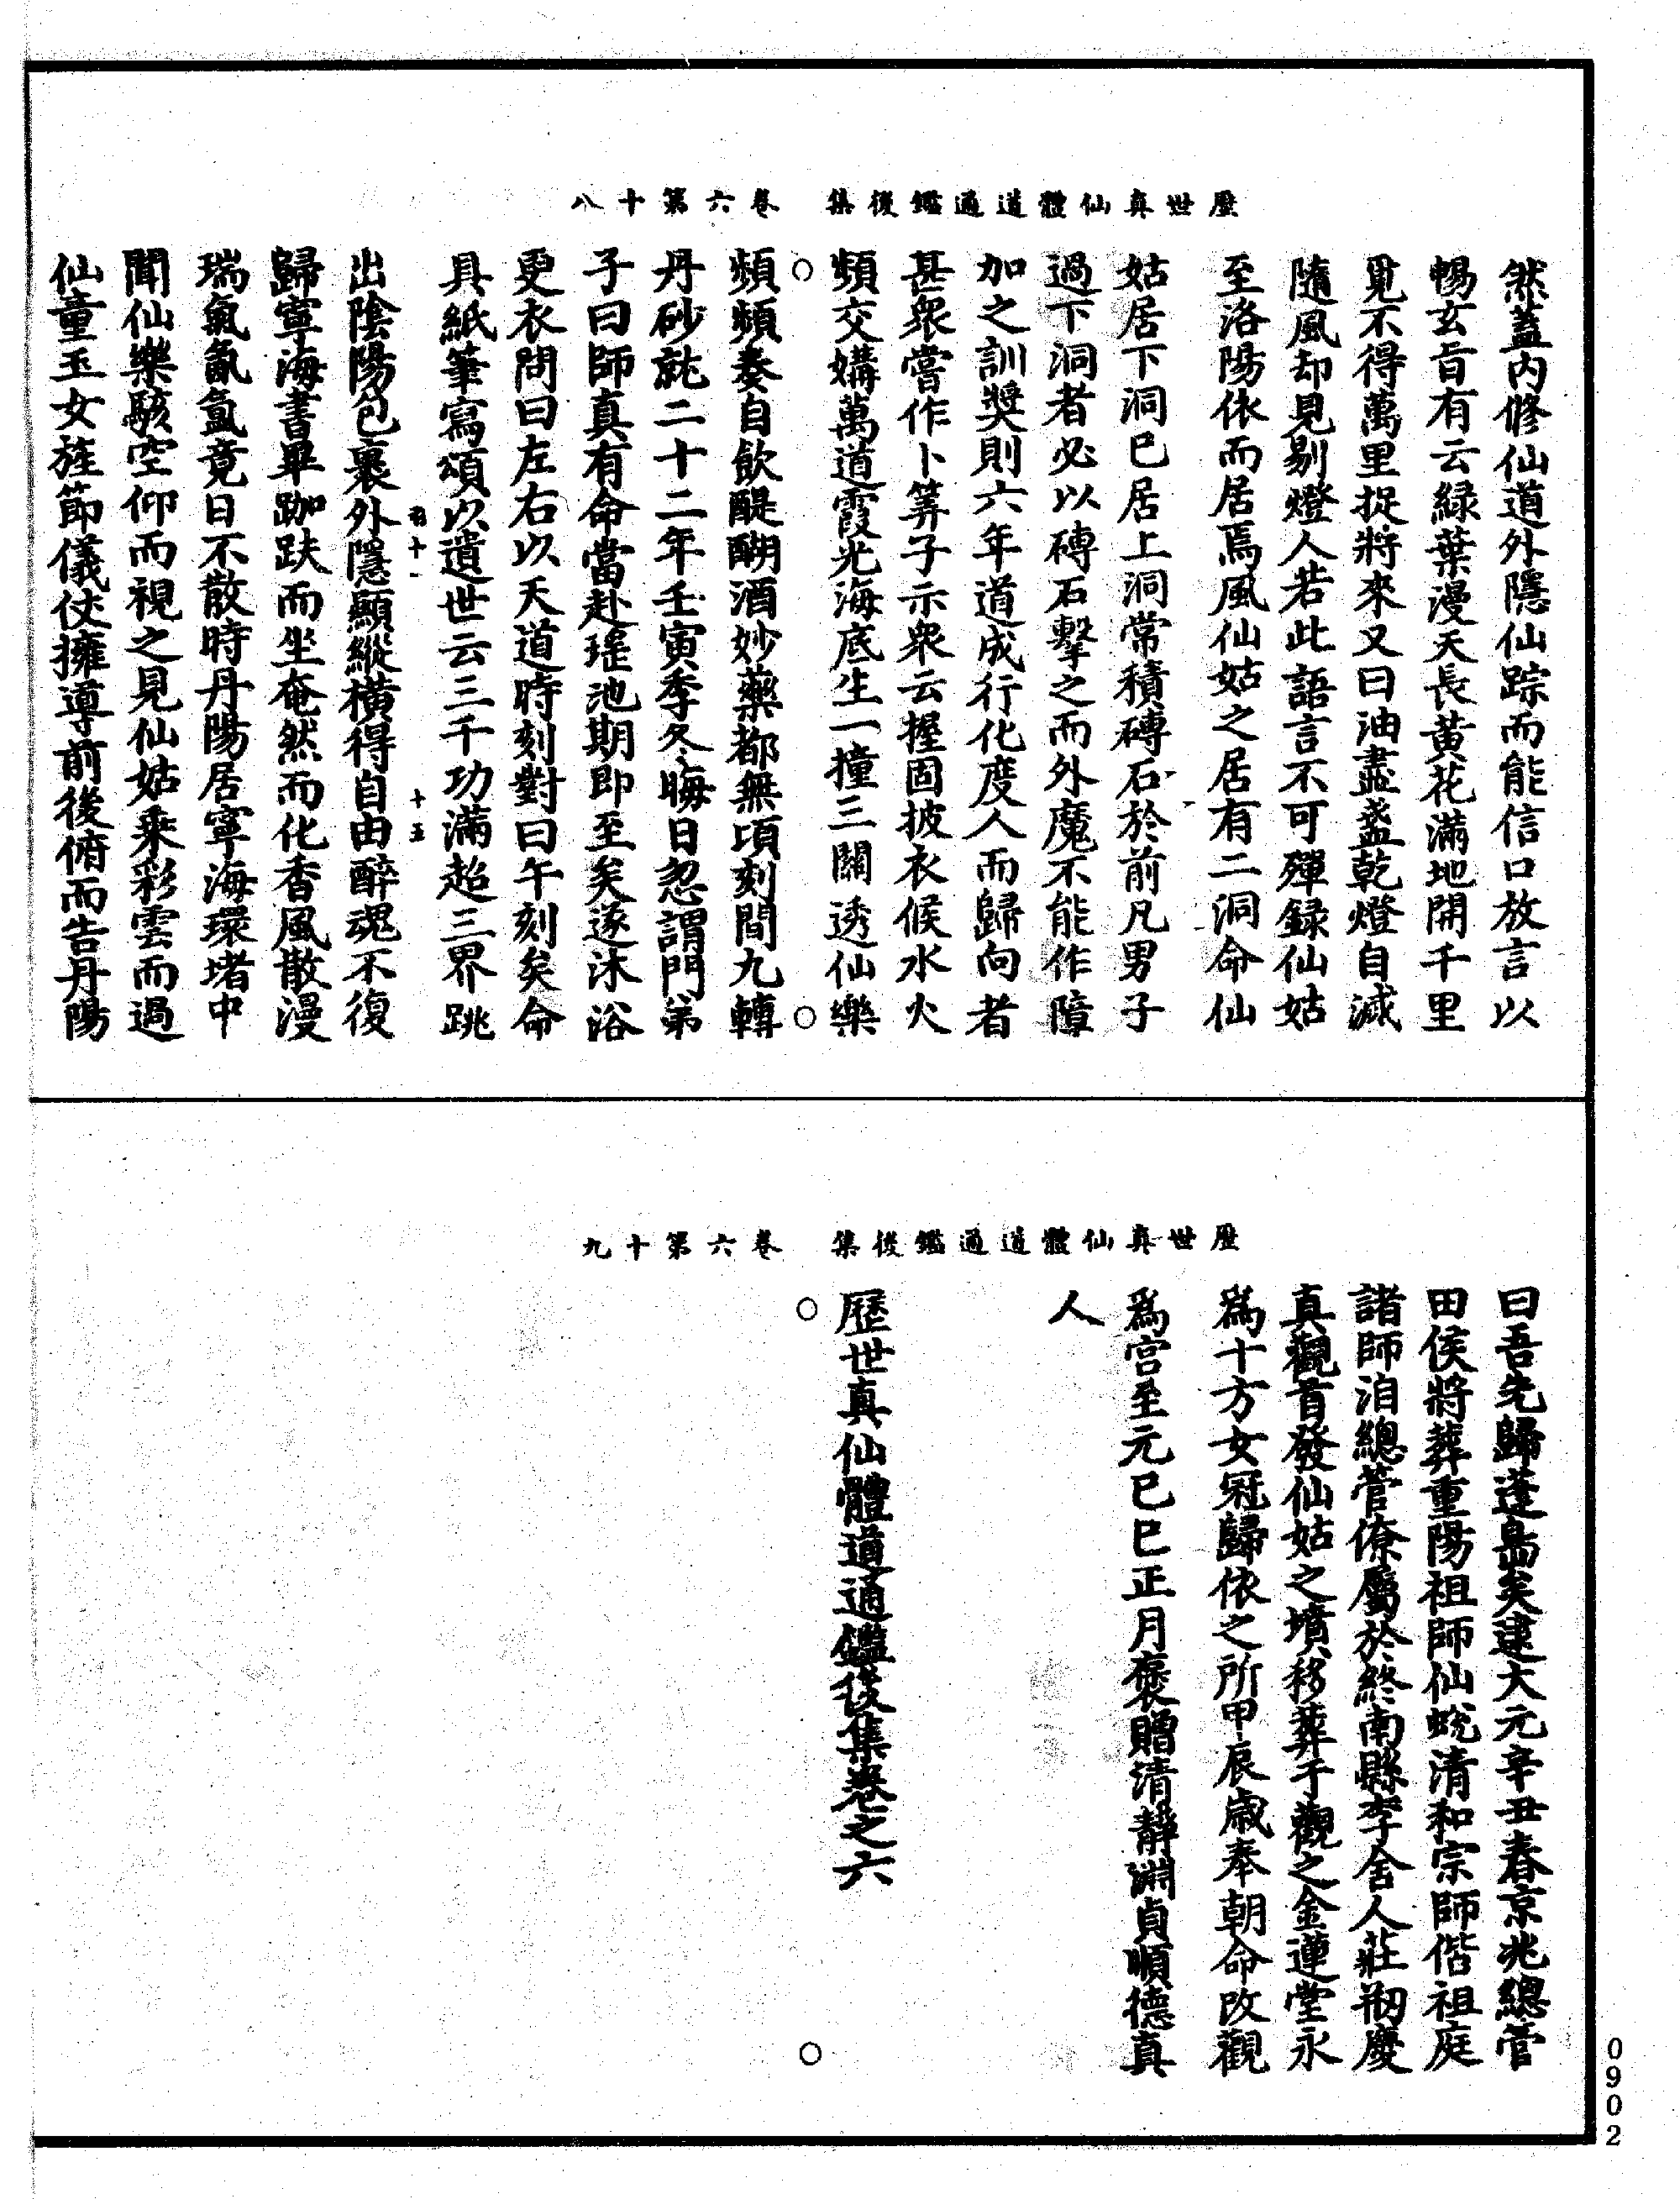 歷世真仙體道通鑑後集　卷六第十八
然蓋內修仙道外隱仙踪而能信口放言以
暢玄旨有云緑葉漫天長黃花滿地開千里
覓不得萬里捉將來又曰油盡盞乾燈自滅
隨風却見剔燈人若此語言不可殫録仙姑
至洛陽依而居焉風仙姑之居有二洞命仙
姑居下洞巳居上洞常積磚石於前凡男子
過下洞者必以磚石擊之而外魔不能作障
加之訓獎則六年道成行化度人而歸向者
甚衆嘗作卜筭子示衆云握固披衣候水火
頻交媾萬道霞光海底生一撞三關透仙樂
頻頻奏自飲醍醐酒妙藥都無頃刻間九轉
丹砂就二十二年壬寅季冬晦日忽謂門弟
子曰師真有命當赴瑤池期即至矣遂沐浴
更衣問曰左右以天道時刻對曰午刻矣命
具紙筆寫頌以遺世云三千功滿超三界跳
十五
出陰陽包裹外隱顯縱橫得自由醉魂不復
歸寧海書畢跏趺而坐奄然而化香風散漫
瑞氣氤氳竟日不散時丹陽居寧海環堵中
聞仙樂駭空仰而視之見仙姑乘彩雲而過
仙童玉女旌節儀仗擁導前後俯而告丹陽
歷世真仙體道通鑑後集　卷六第十九
曰吾先歸蓬島矣逮大元辛丑春京兆總管
田侯將葬重陽祖師仙蛻清和宗師偕祖庭
諸師洎總管僚屬於終南縣李舍人莊剏慶
真觀首發仙姑之墳移葬于觀之金蓮堂永
爲十方女冠歸依之所甲辰歲奉朝命改觀
爲宮至元巳巳正月褒贈清靜淵貞順德真
人
歷世真仙體道通鑑後集卷之六
0902